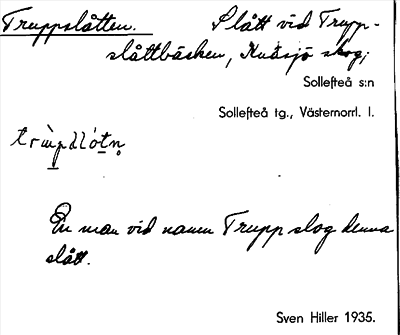 Truppslåtten. Slått vid Trupp-
slåttbäcken, Knäsjö skog;
Sollefteå s:n
Sollefteå tg., Västernorrl. l.
En man vid namn Trupp slog denna
slått.
Sven Hiller 1935.